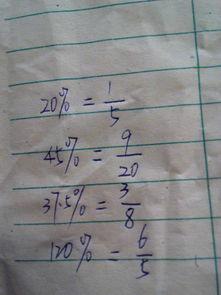 20% = 1/5
45% = 9/20
37.5% = 3/8
120% = 6/5